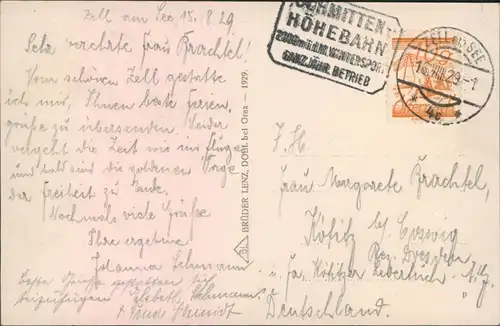 Zell am See 15.8.29.
Sehr verehrte Frau Krachtel!
Vom schönen Zell gestatte
ich mir, Ihnen beste Ferien-
grüße zu übersenden. Leider
vergeht die Zeit wie im Fluge
und bald sind die goldenen Tage
der Freiheit zu Ende.
Nochmals viele Grüße
Ihre ergebene
Johanna
Beste Grüße gestatten sich
beizufügen
BRÜDER LENZ, DOBL bei Graz – 1929.
SCHMITTEN
HÖHEBAHN
2000m ü.d.M. WINTERSPORT
GANZJÄHR. BETRIEB
ZELL AM SEE
* 4c *
F. H.
Frau Margarete Krachtel,
Kötitz b/ Coswig
Bez. Dresden
Kötitzer Ledertuch
Deutschland.